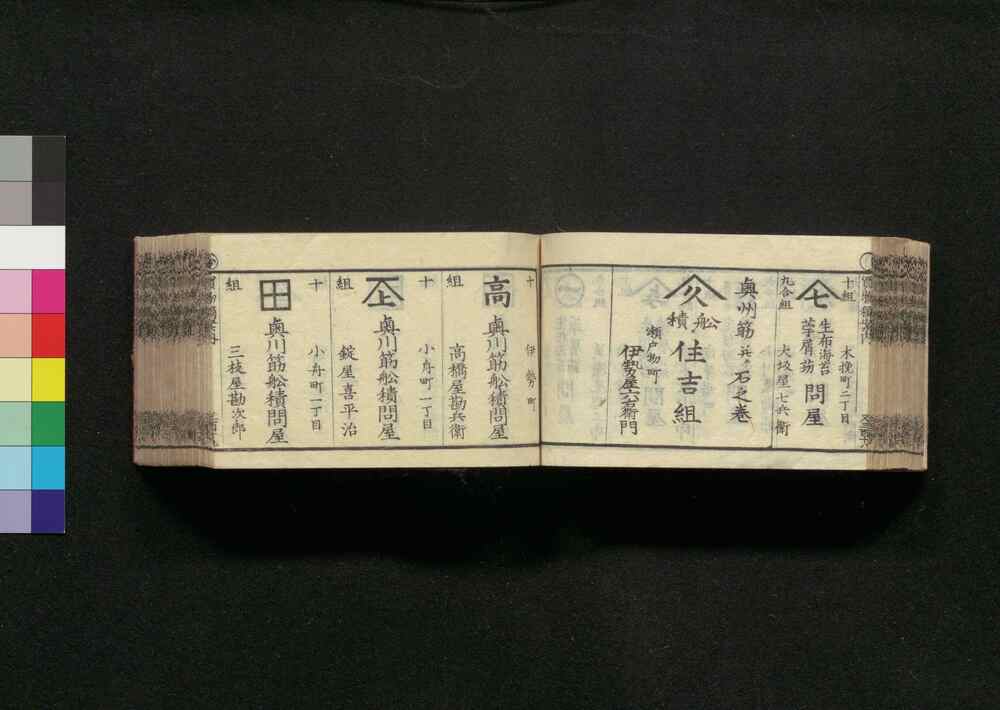 十組
木挽町二丁目
七
生布海苔
苧屑苆
問屋
九合組
大坂屋七兵衛
奥州筋
石之巻
久
船積
住吉組
瀬戸物町
伊勢屋六右衛門
十
伊勢町
高
奥川筋舩積問屋
組
高橋屋勘兵衛
十
小舟町一丁目
上
奥川筋舩積問屋
組
錠屋喜平治
十
小舟町一丁目
田
奥川筋舩積問屋
組
三枝屋勘次郎